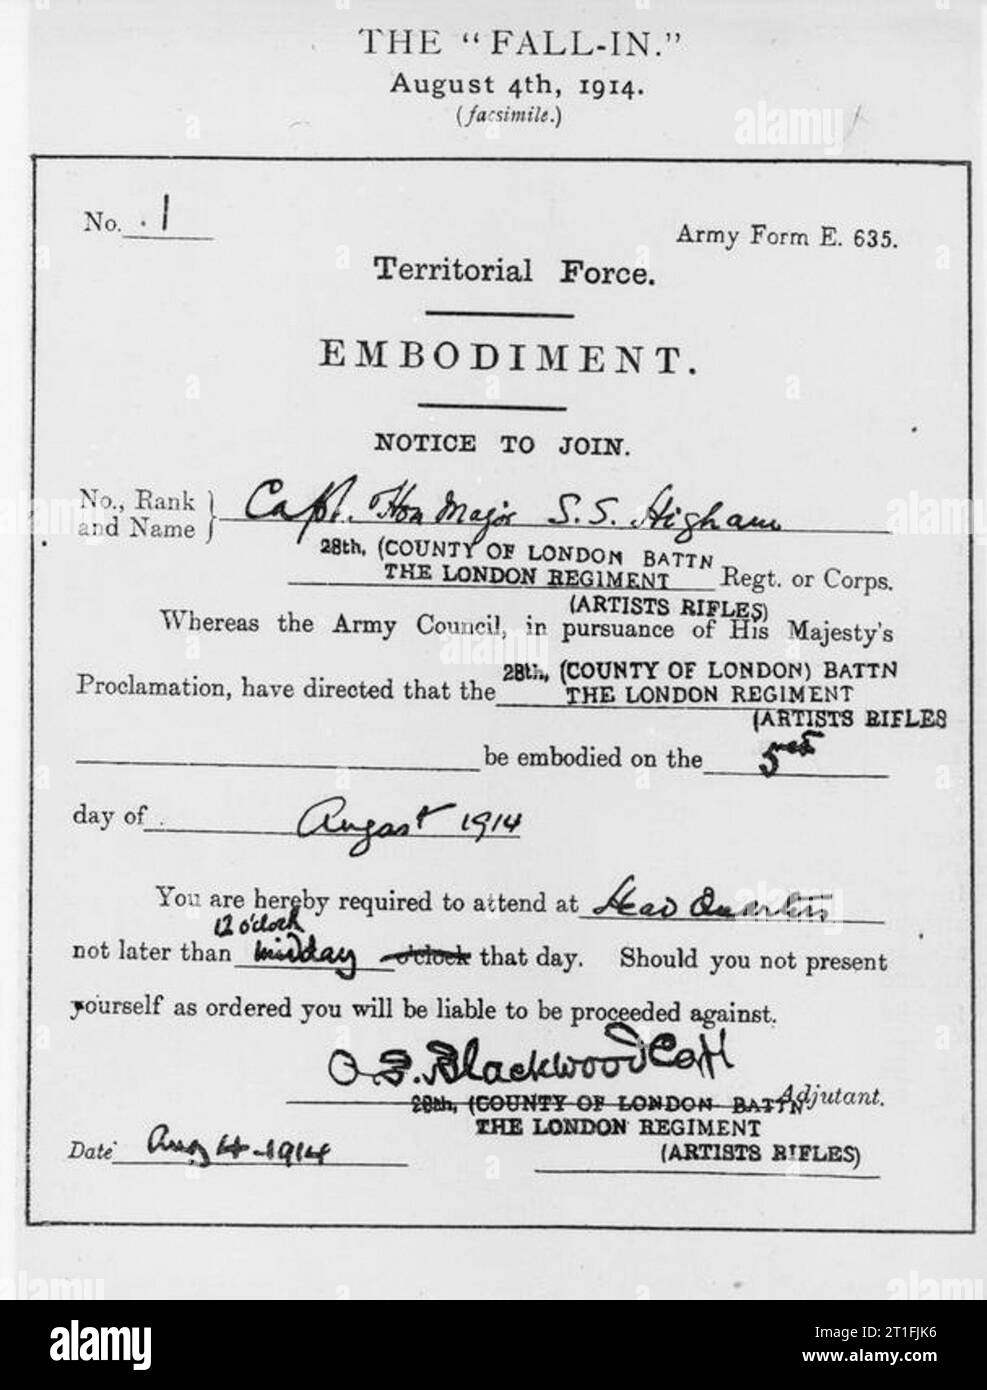 THE "FALL-IN."
August 4th, 1914.
(facsimile.)
No. 1
Army Form E. 635.
Territorial Force.
EMBODIMENT.
NOTICE TO JOIN.
No., Rank and Name } Capt. Hon Major S. S. Higham
28th, (COUNTY OF LONDON BATTN
THE LONDON REGIMENT Regt. or Corps.
(ARTISTS RIFLES)
Whereas the Army Council, in pursuance of His Majesty's
28th, (COUNTY OF LONDON) BATTN
Proclamation, have directed that the THE LONDON REGIMENT
(ARTISTS RIFLES
be embodied on the 5
day of August 1914
You are hereby required to attend at Head Quarters
12 o'clock
not later than midday o'clock that day. Should you not present
yourself as ordered you will be liable to be proceeded against.
Blackwood Capt
Adjutant.
28th, (COUNTY OF LONDON BATTN
THE LONDON REGIMENT
(ARTISTS RIFLES)
Date Aug 4-1914
alamy
Image ID: 2T1FJK6
www.alamy.com